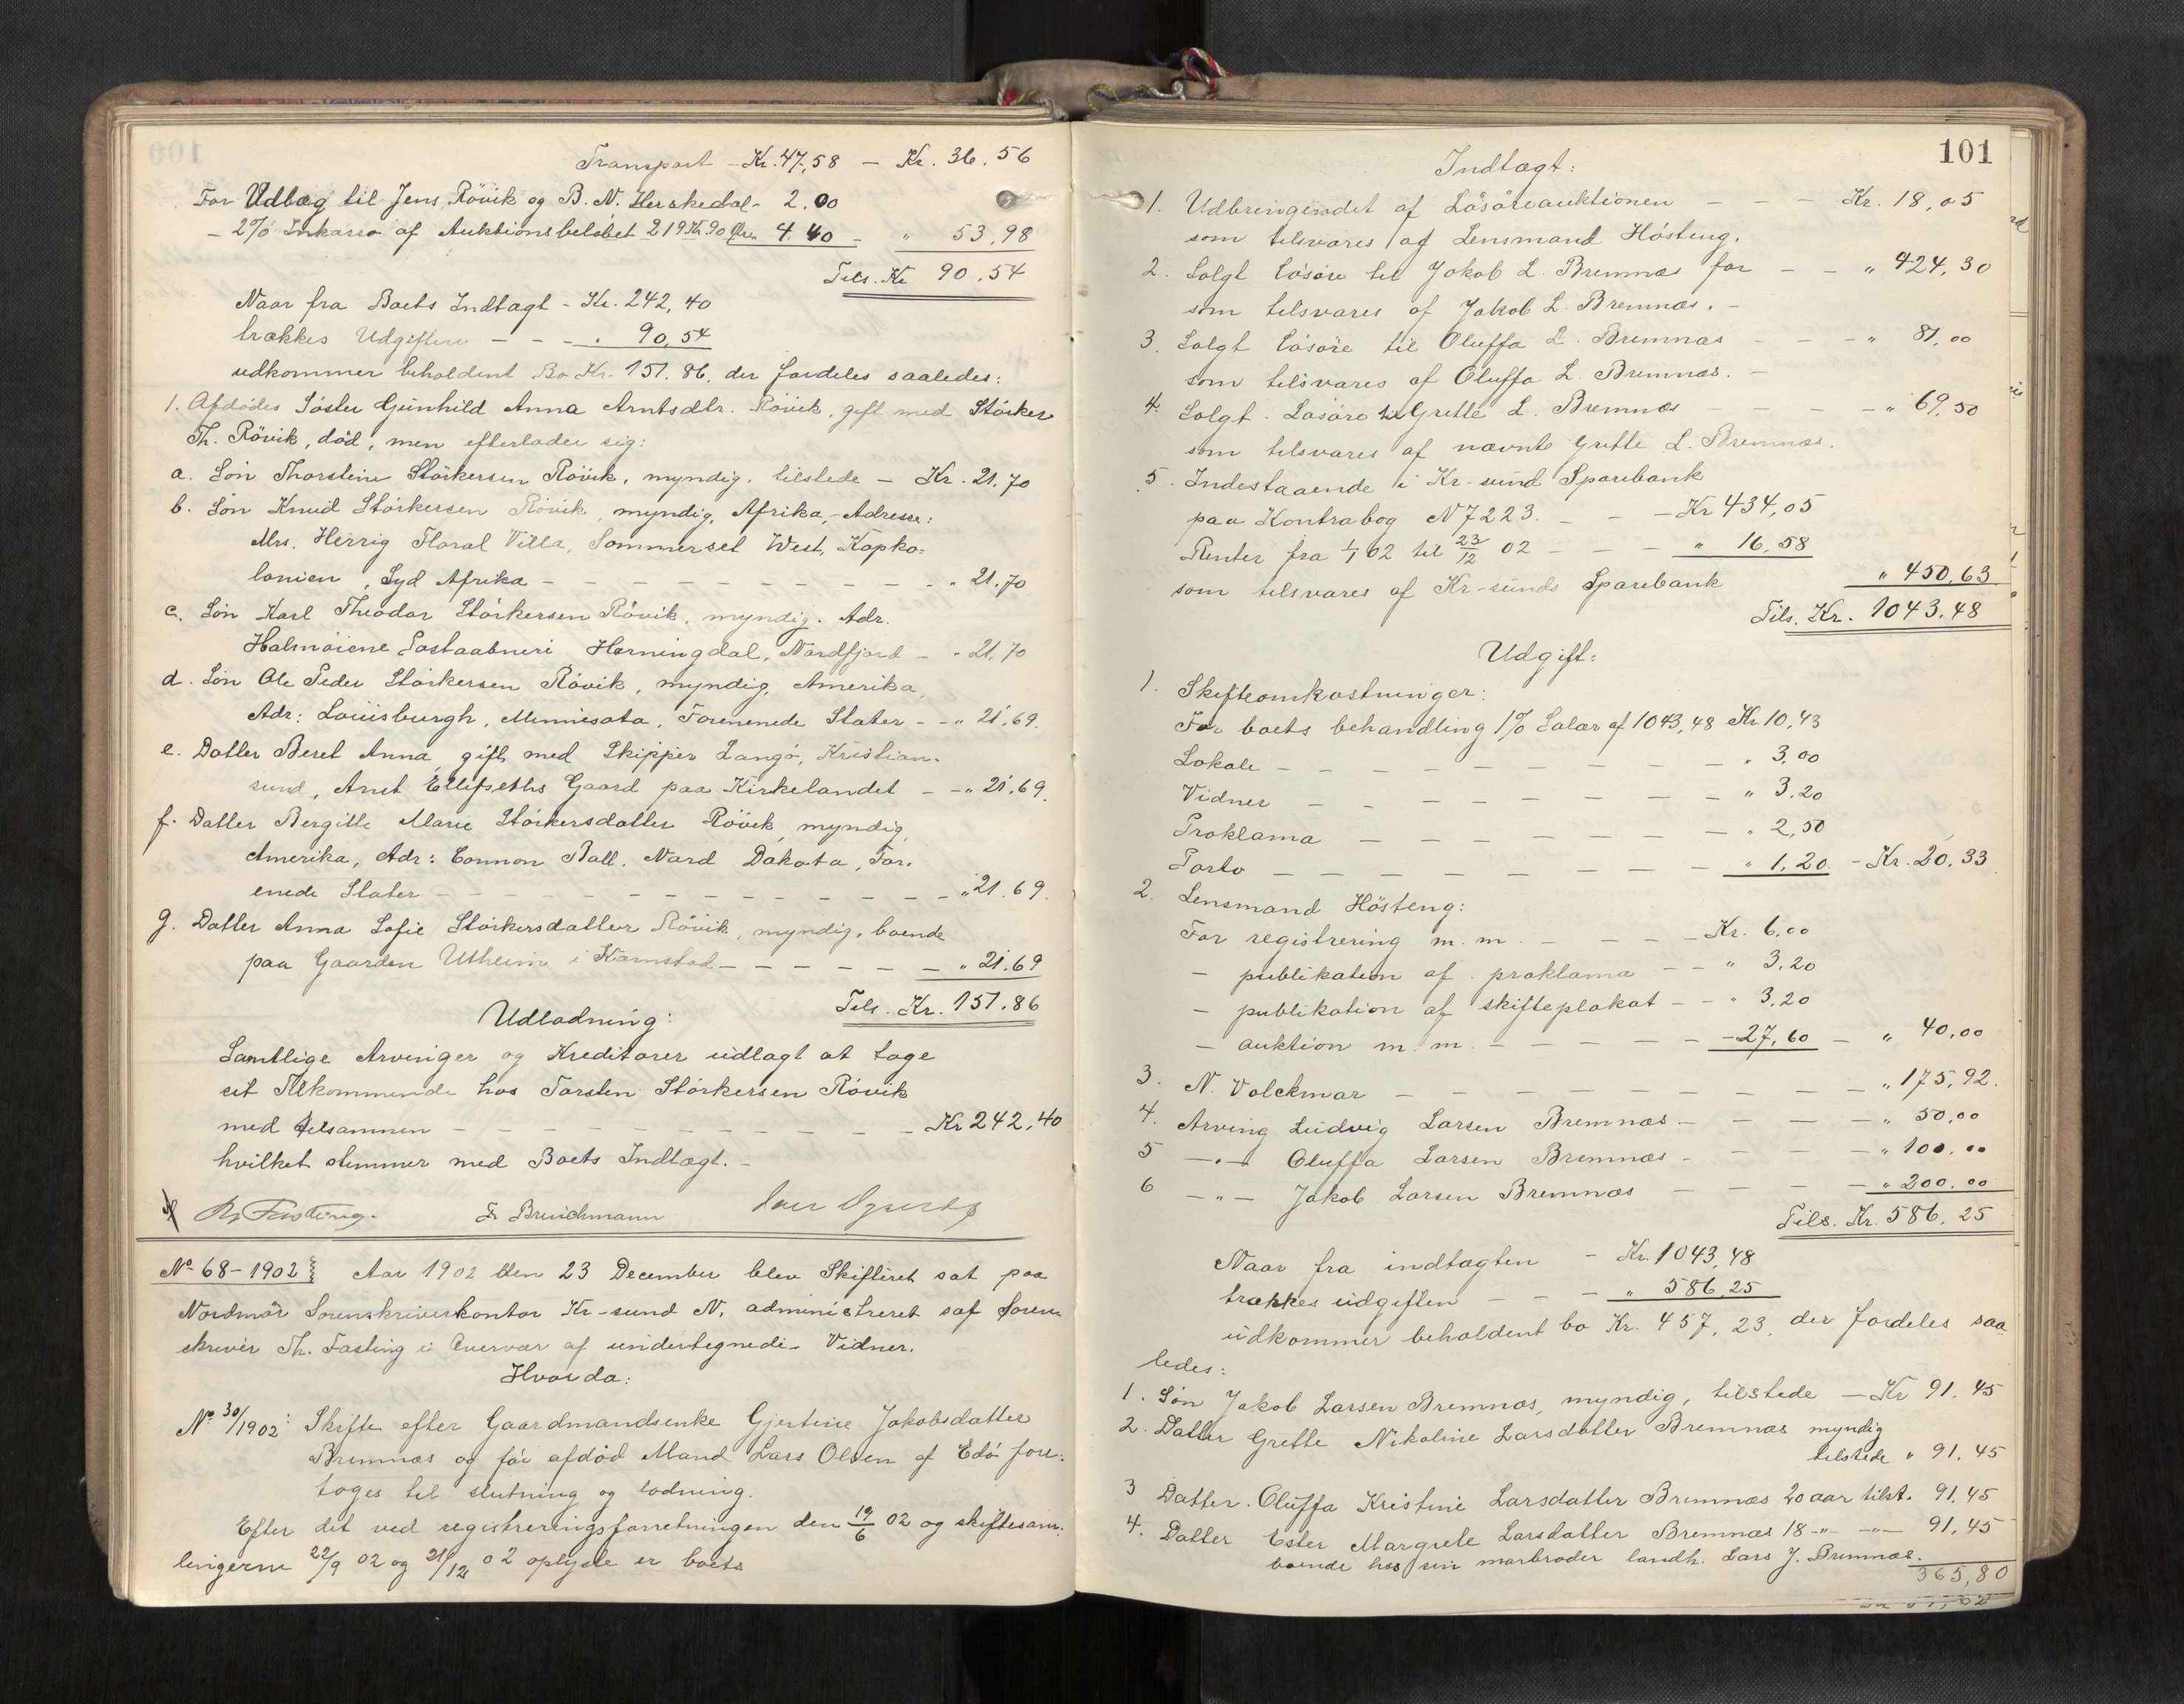 Transport - Kr. 47,58 - Kr. 36.56
For Udlæg til Jens Rövik og B. N. Herskedal - 2.00
- 2% Inkasso af Auktionsbelöbet 219 Kr 90 Øre 4.40 - " 53,98
Tils. Kr 90.54
Naar fra Boets Indtægt - Kr. 242,40
trækkes Udgiften - - - " 90,54
udkommer beholdent Bo Kr. 151.86, der fordeles saaledes:
1. Afdödes Söster Gunhild Anna Arntsdtr. Rövik, gift med Störker
Th. Rövik, död, men efterlader sig:
a. Sön Thorstein Störkersen Rövik, myndig, tilstede - Kr. 21.70
b. Sön Knud Störkersen Rövik, myndig, Afrika, Adresse:
Mrs. Herrig Floral Villa, Sommerset West, Kapko-
lonien, Syd Afrika - - - - - - - - " 21.70
c. Sön Karl Theodor Störkersen Rövik, myndig. Adr.
Halmöiene Postaabneri Horningdal, Nordfjord - " 21.70
d. Sön Ole Peder Störkersen Rövik, myndig, Amerika,
Adr: Louisburgh, Minnesota, Forenenede Stater - - " 21.69.
e. Datter Beret Anna, gift med Skipper Langö, Kristian-
sund, Anet Ellefseths Gaard paa Kirkelandet - - " 21.69.
f. Datter Bergitte Marie Störkersdatter Rövik, myndig,
Amerika, Adr: Connon Ball. Nord Dakota, For.
enede Stater - - - - - - - - - " 21.69.
g. Datter Anna Sofie Störkersdatter Rövik, myndig, boende
paa Gaarden Utheim i Kornstad - - - - - " 21.69
Tils. Kr. 151.86
Udlodning:
Samtlige Arvinger og Kreditorer udlagt at tage
sit Tilkommende hos Torsten Störkersen Rövik
med tilsammen - - - - - - - - Kr 242.40
hvilket stemmer med Boets Indtægt. -
Th. Fasting. Fr Bruichmann
No 68-1902 Aar 1902 den 23 December blev Skifteret sat paa
Nordmör Sorenskriverkontor Kr-sund N, administreret af Soren
skriver Th. Fasting i Overvær af undertegnede Vidner.
Hvorda:
No 30/1902: Skifte efter Gaardmandsenke Gjertine Jakobsdatter
Bremnæs og för afdöd Mand Lars Olsen af Edö fore-
toges til slutning og lodning.
Efter det ved registreringsforretningen den 19/6 02 og skiftesam-
lingerne 22/9 02 og 21/12 02 oplyste er boets
101
Indtægt:
1. Udbringendet af Lösöreauktionen - - - Kr. 18,05
som tilsvares af Lensmand Hösteng.
2. Solgt lösöre til Jakob L. Bremnæs for - - " 424,30
som tilsvares af Jakob L. Bremnæs. -
3. Solgt lösöre til Oluffa L. Bremnæs - - - " 81,00
som tilsvares af Oluffa L. Bremnæs. -
4. Solgt Lösöre til Grette L. Bremnæs - - - " 69,50
som tilsvares af nævnte Grette L. Bremnæs.
5. Indestaaende i Kr-sund Sparebank
paa Kontrabog N 7223. - - - Kr 434,05
Renter fra 1/1 02 til 23/12 02 - - - " 16,58
som tilsvares af Kr-sunds Sparebank " 450,63
Tils. Kr. 1043.48
Udgift:
1. Skifteomkostninger:
For boets behandling 1% Salær af 1043,48 Kr. 10,43
Lokale - - - - - - - " 3,00
Vidner - - - - - - - " 3.20
Proklama - - - - - - " 2,50
Porto - - - - - - - " 1,20. - Kr. 20,33
2. Lensmand Hösteng:
For registrering m. m. - - - Kr. 6,00
- publikation af proklama - - " 3,20
- publikation af skifteplakat - - " 3,20
- auktion m. m. - - - - - " 27,60 - " 40,00
3. N. Volckmar - - - - - - - - " 175,92.
4. Arving Ludvig Larsen Bremnæs - - - - " 50,00
5 - " - Oluffa Larsen Bremnæs - - - - " 100.00
6 - " - Jakob Larsen Bremnæs - - - - " 200.00
Tils. Kr. 586,25
Naar fra indtægten - Kr. 1043,48
trækkes udgiften - - - " 586,25
udkommer beholdent bo Kr. 457,23, der fordeles saa
ledes:
1. Sön Jakob Larsen Bremnæs, myndig, tilstede - Kr 91.45
2. Datter Grette Nikoline Larsdatter Bremnæs myndig
tilstede " 91,45
3 Datter. Oluffa Kristine Larsdatter Bremnæs 20 aar tilst. 91,45
4. Datter Ester Margrete Larsdatter Bremnæs 18 -"- -"- 91,45
boende hos sin morbroder landh. Lars J. Bremnæs.
365,80